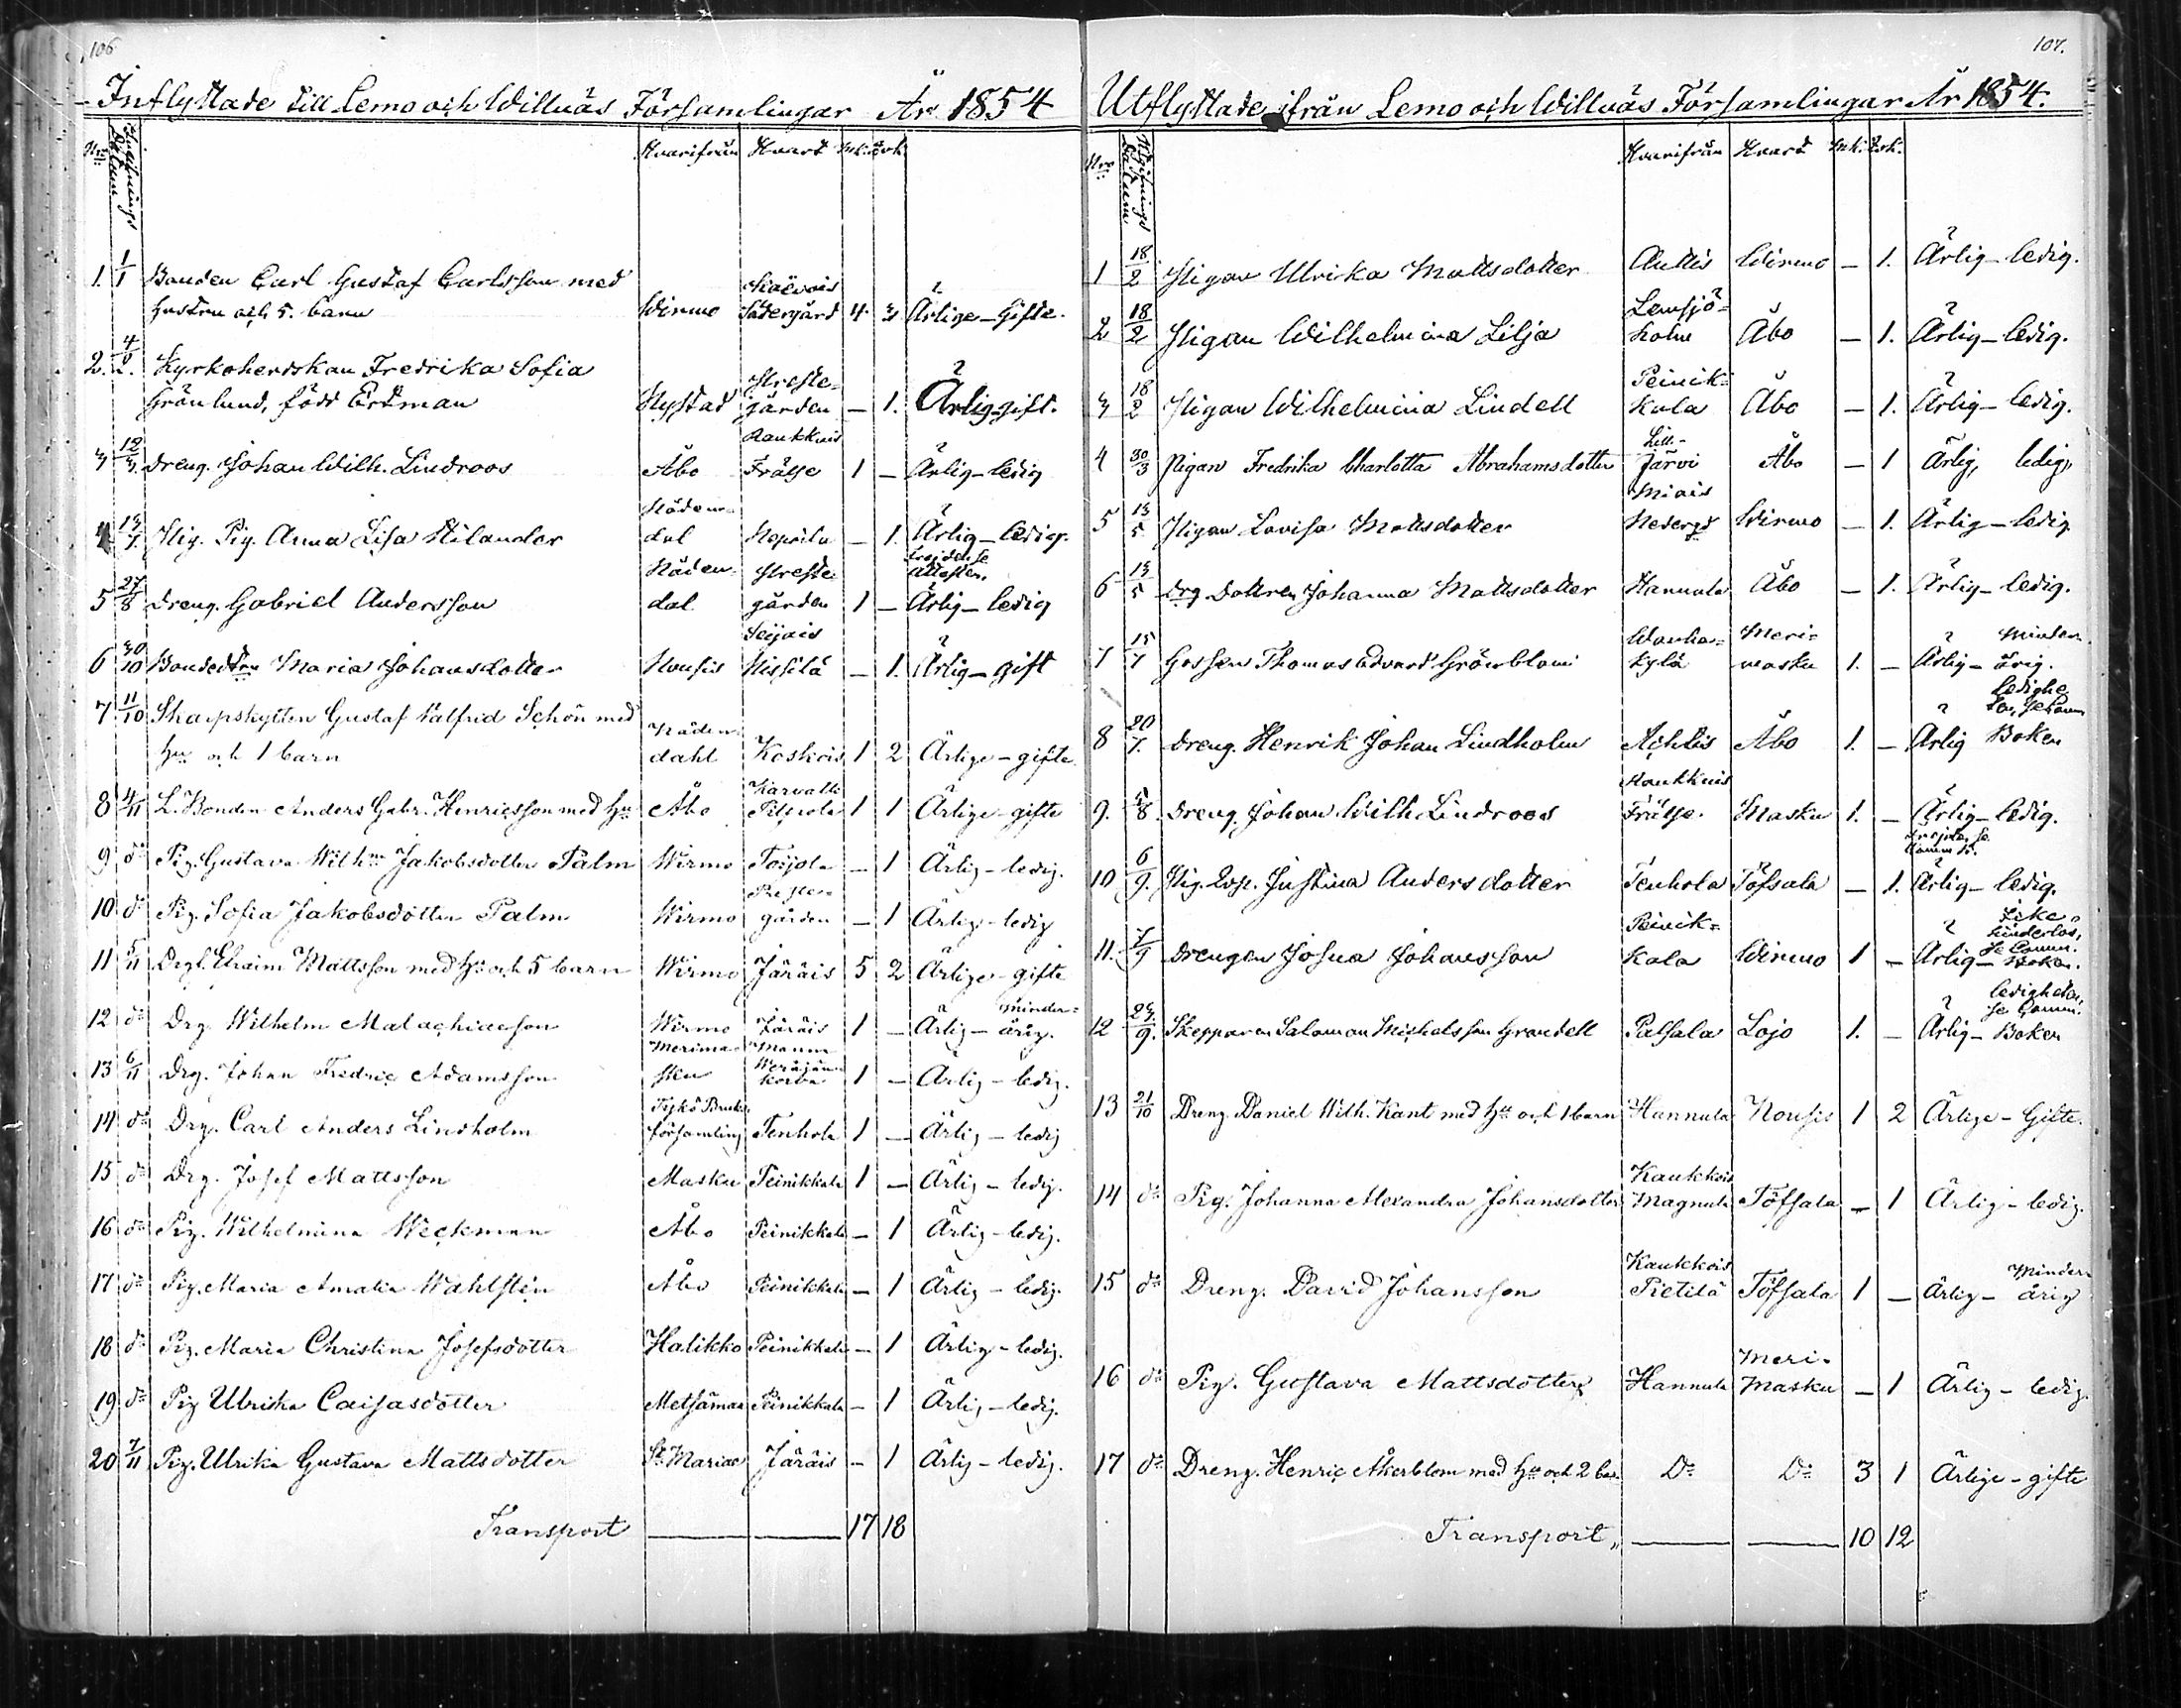 106
Inflyttade till Lemo och Willnäs Församlingar År 1854
Nro Inskrifnings Datum Hvarifrån Hvart Mk. Qvk.
1. 1/1 Bonden Carl Gustaf Carlsson med
hustru och 5. barn Wirmo Södergård 4. 3 Ärlige - Gifte.
2. 4/2. Kyrkoherdskan Fredrika Sofia
Grönlund, född Ertman Nystad Prestegården - 1. Ärlig-gift.
3 12/3. Dreng. Johan Wilh. Lindroos Åbo Kaukkois Frälse 1 - Ärlig - ledig
4 13/7. Pig. Anna Lisa Hilander Nådendal - 1. Ärlig - ledig.
5 27/8 Dreng. Gabriel Andersson Nådendal Prestegården 1 - Ärlig - ledig
6 30/10 Maria Johansdotter Nousis Seijais Hissilä - 1. Ärlig - gift
7 11/10 Skarpskytten Gustaf Valfrid Schön med
hu och 1 barn Nådendahl Koskois 1 2 Ärlige - gifte
8 4/11 L. Bonden Anders Gabr. Henricsson med hu Åbo Karvatti 1 1 Ärlige - gifte
9 do Pig. Gustava Wilhna Jakobsdotter Palm Wirmo Toijola - 1 Ärlig - ledig.
10 do Pig. Sofia Jakobsdotter Palm Wirmo Prestegården - 1 Ärlig - ledig
11 5/11 Efraim Mattsson med hu och 5 barn Wirmo Järäis 5 2 Ärlige - gifte
12 do Drg. Wilhelm Malachiaesson Wirmo Järäis 1 - Ärlig - minderårig.
13 6/11 Drg. Johan Fredric Adamsson Merimasku 1 - Ärlig - ledig.
14 do Drg. Carl Anders Lindholm Tykö Bruks församling Tenhola 1 - Ärlig - ledig
15 do Drg. Josef Mattsson Masku Peinikkala 1 - Ärlig - ledig.
16 do Pig. Wilhelmina Weckman Åbo Peinikkala - 1 Ärlig - ledig.
17 do Pig. Maria Amalia Wahlstén Åbo Peinikkala - 1 Ärlig - ledig.
18 do Pig. Maria Christina Josefsdotter Halikko Peinikkala - 1 Ärlig - ledig.
19 do Pig Ulrika Caisasdotter Metsämaa Peinikkala - 1 Ärlig - ledig.
20 7/11 Pig. Ulrika Gustava Mattsdotter St. Mariae Järäis - 1 Ärlig - ledig.
Transport 17 18
107.
Utflyttade ifrån Lemo och Willnäs Församlingar År 1854.
Nro Utgifnings Datum Hvarifrån Hvart Mk. Qvk.
1 18/2 Pigan Ulrika Mattsdotter Anttis Wirmo - 1. Ärlig - ledig.
2 18/2 Pigan Wilhelmina Lilja Lemsjöholm Åbo - 1. Ärlig - ledig.
3 18/2 Pigan Wilhelmina Lindell Peinikkala Åbo - 1. Ärlig - ledig.
4 30/3 Pigan Fredrika Charlotta Abrahamsdotter Lill-Järvi Åbo - 1 Ärlig, ledig,
5 13/5 Pigan Lovisa Mattsdotter Miais Nedergd Wirmo - 1. Ärlig - ledig
6 13/5 Drg. Dottren Johanna Mattsdotter Hannula Åbo - 1. Ärlig - ledig.
7 15/7 Gossen Thomas Edvard Grönblom Wanhakylä Merimasku 1. - Ärlig - Minderårig.
8 20/7. Dreng. Henrik Johan Lindholm Achtis Åbo 1. - Ärlig Boken
9. 5/8. Dreng. Johan Wilh. Lindroos Kaukkois Frälse. Masku 1. - Ärlig - ledig.
10 6/9. Pig. Justina Andersdotter Tenhola Töfsala - 1. Ärlig - ledig.
11. 7/9 Drengen Josua Johansson Peinikkala Wirmo 1 - Ärlig - hinderlös, se Comm. Boken.
12 23/9. Skepparen Salomon Michelsson Grandell Palsala Lojo 1. - Ärlig - ledigheten, se Comm. Boken
13 21/10 Dreng. Daniel Wilh. Kant med hu och 1 barn Hannula Nousis 1 2 Ärlige - Gifte.
14 do Pig. Johanna Alexandra Johansdotter Kaukkois Magnula Töfsala - 1 Ärlig - ledig.
15 do Dreng. David Johansson Kaukkois Pietilä Töfsala 1 - Ärlig - Minderårig
16 do Pig. Gustava Mattsdotter Hannula Merimasku - 1 Ärlig - ledig.
17 do Dreng. Henric Åkerblom med hu och 2 bar. Do Do 3 1 Ärlige - gifte
Transport 10 12